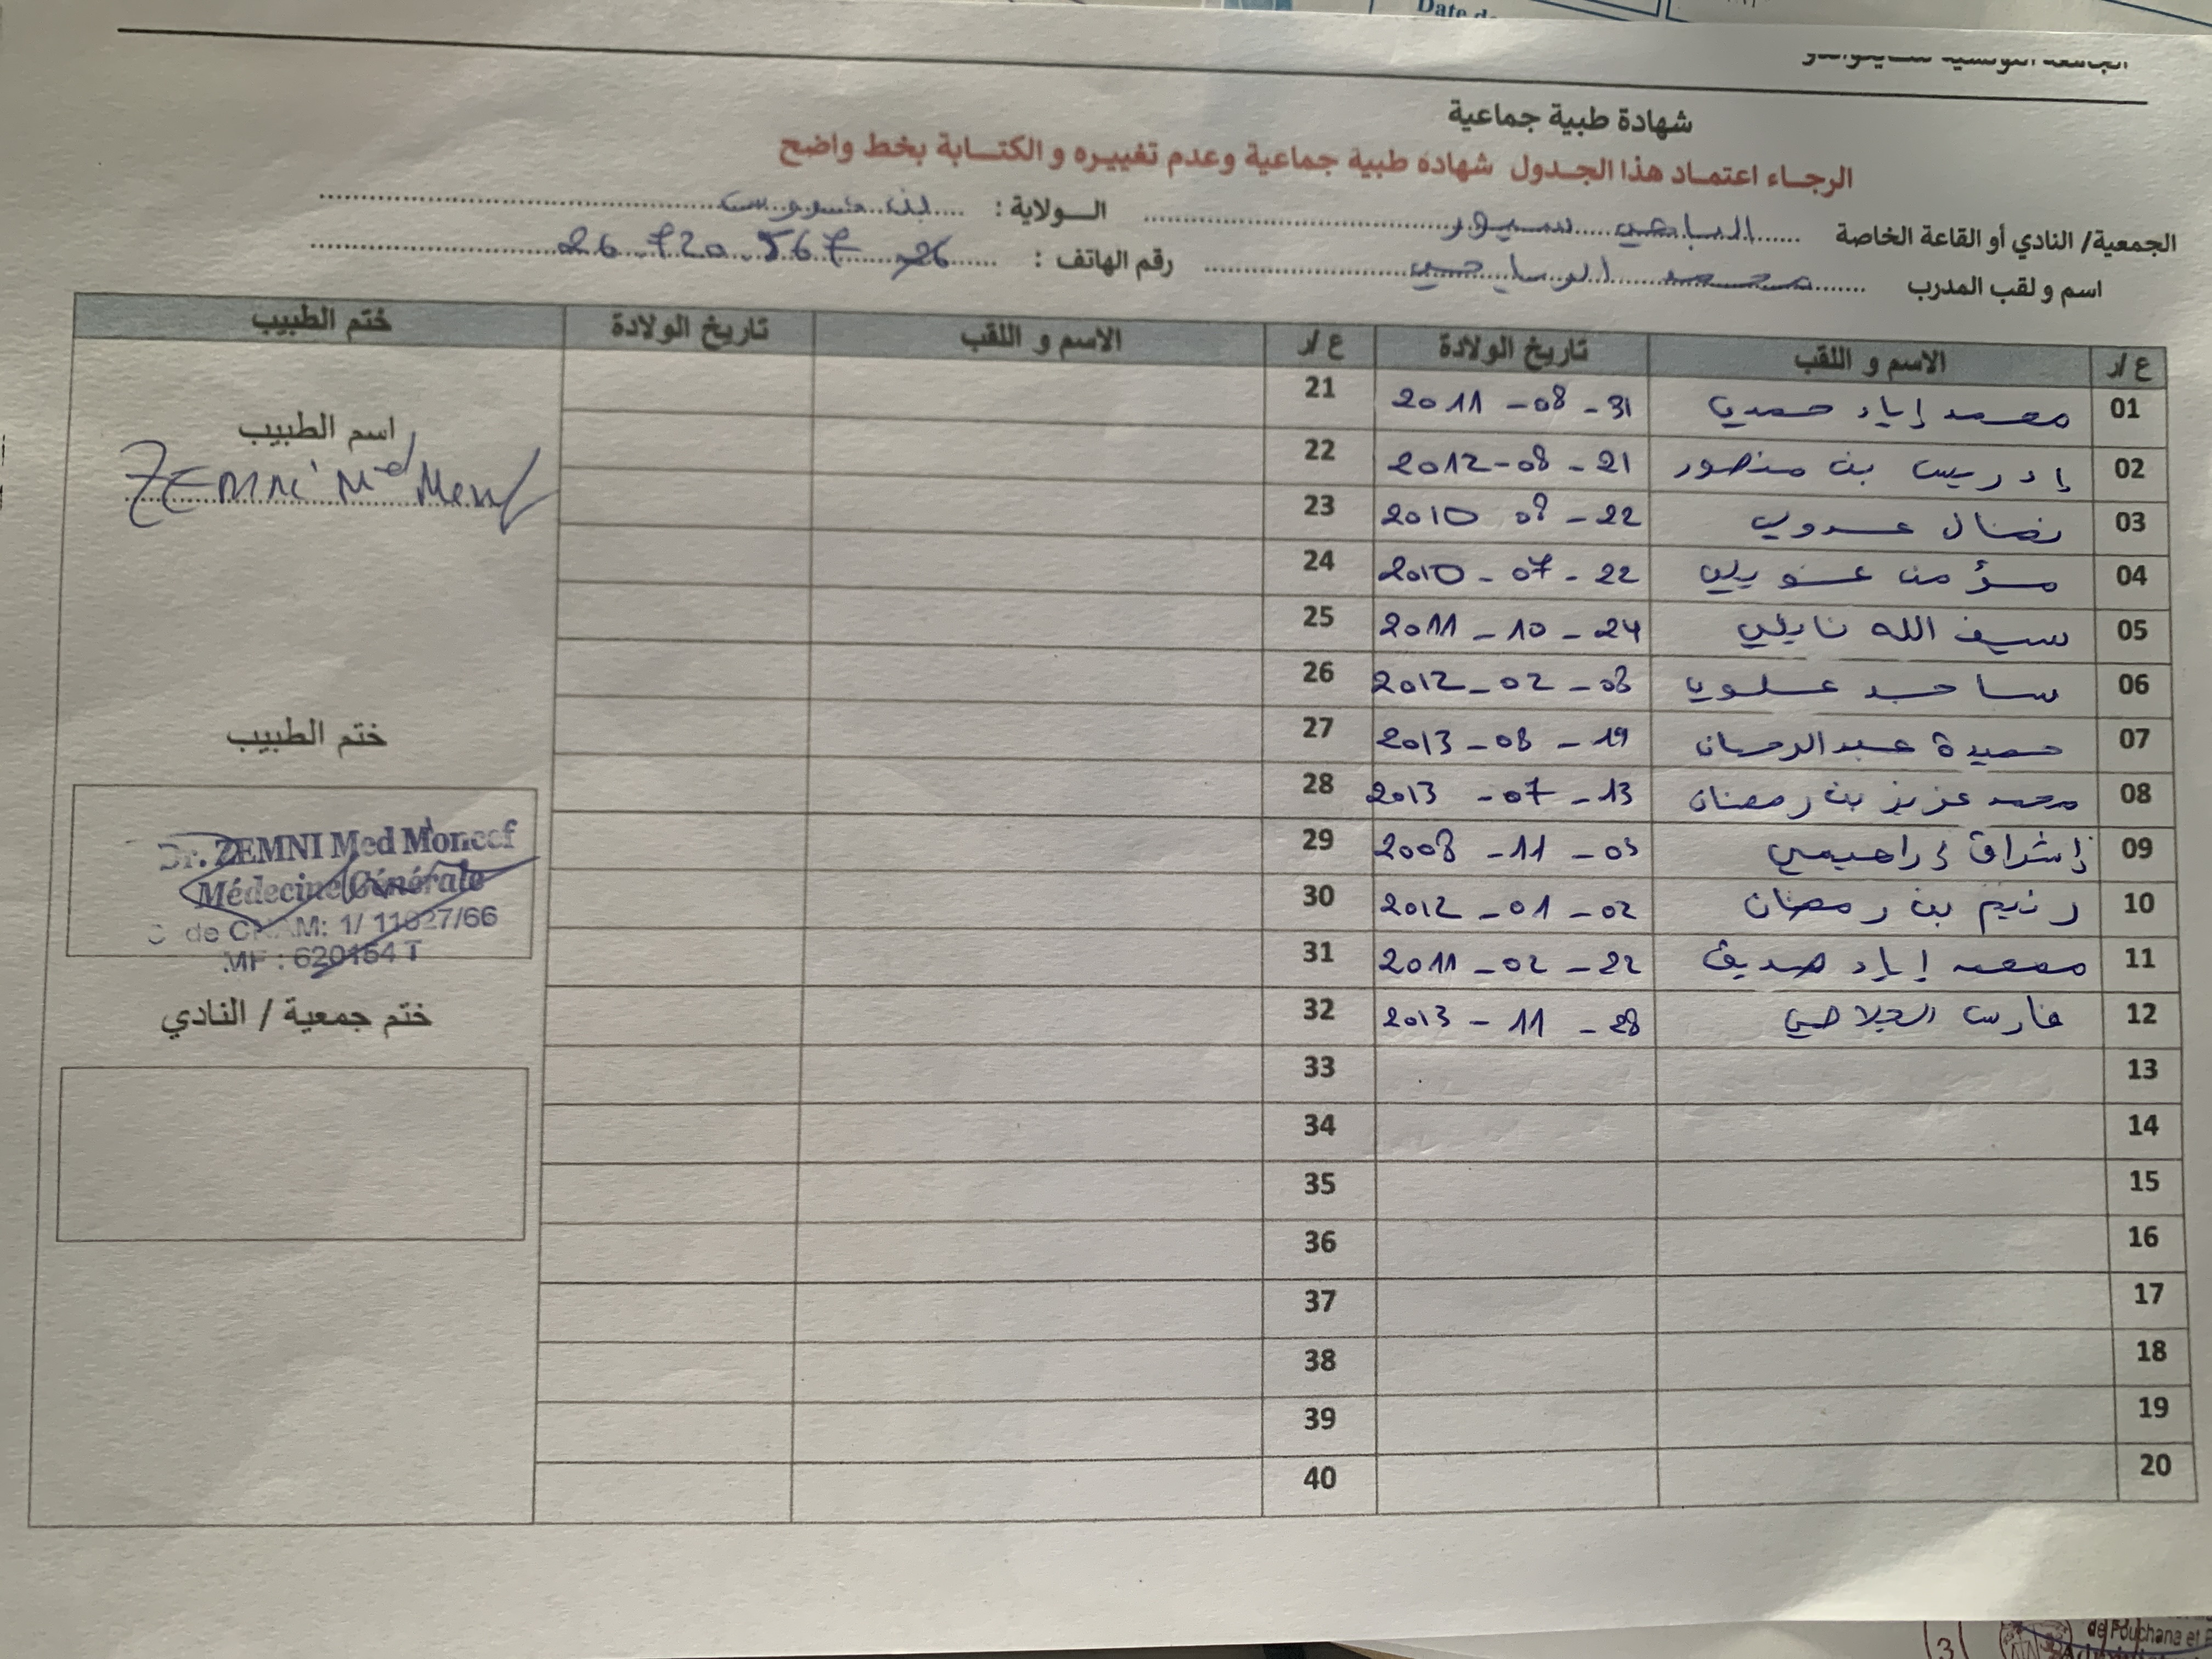 Date d
شهادة طبية جماعية
الرجاء اعتماد هذا الجدول شهادة طبية جماعية وعدم تغييره و الكتابة بخط واضح
الجمعية/ النادي أو القاعة الخاصة الباهي سبور الولاية : بن عروس
اسم و لقب المدرب محمد رقم الهاتف : 26.720.567
ع/ر الاسم و اللقب تاريخ الولادة ع/ر الاسم و اللقب تاريخ الولادة ختم الطبيب
01 محمد إياد حمدي 2011-08-31 21
02 إدريس بن منصور 2012-08-21 22
03 نضال عدوي 2010 08-22 23
04 مؤمن 2010-07-22 24
05 سيف الله نايلي 2011-10-24 25
06 ساجد علوي 2012-02-08 26
07 حميدة عبد الرحمان 2013-08-19 27
08 محمد عزيز بن رمضان 2013-07-13 28
09 إشراق 2008-11-03 29
10 رنيم بن رمضان 2012-01-02 30
11 محمد إياد صديق 2011-02-22 31
12 فارس الجلاصي 2013-11-28 32
13 33
14 34
15 35
16 36
17 37
18 38
19 39
20 40
اسم الطبيب
ZEMNI Md
ختم الطبيب
Dr. ZEMNI Med Moncef
Médecine Générale
de CNAM: 1/ 11027/66
MF : 620154 T
ختم جمعية / النادي
de Fouchana et